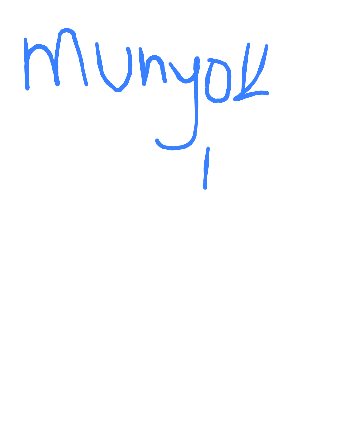 munyok
1